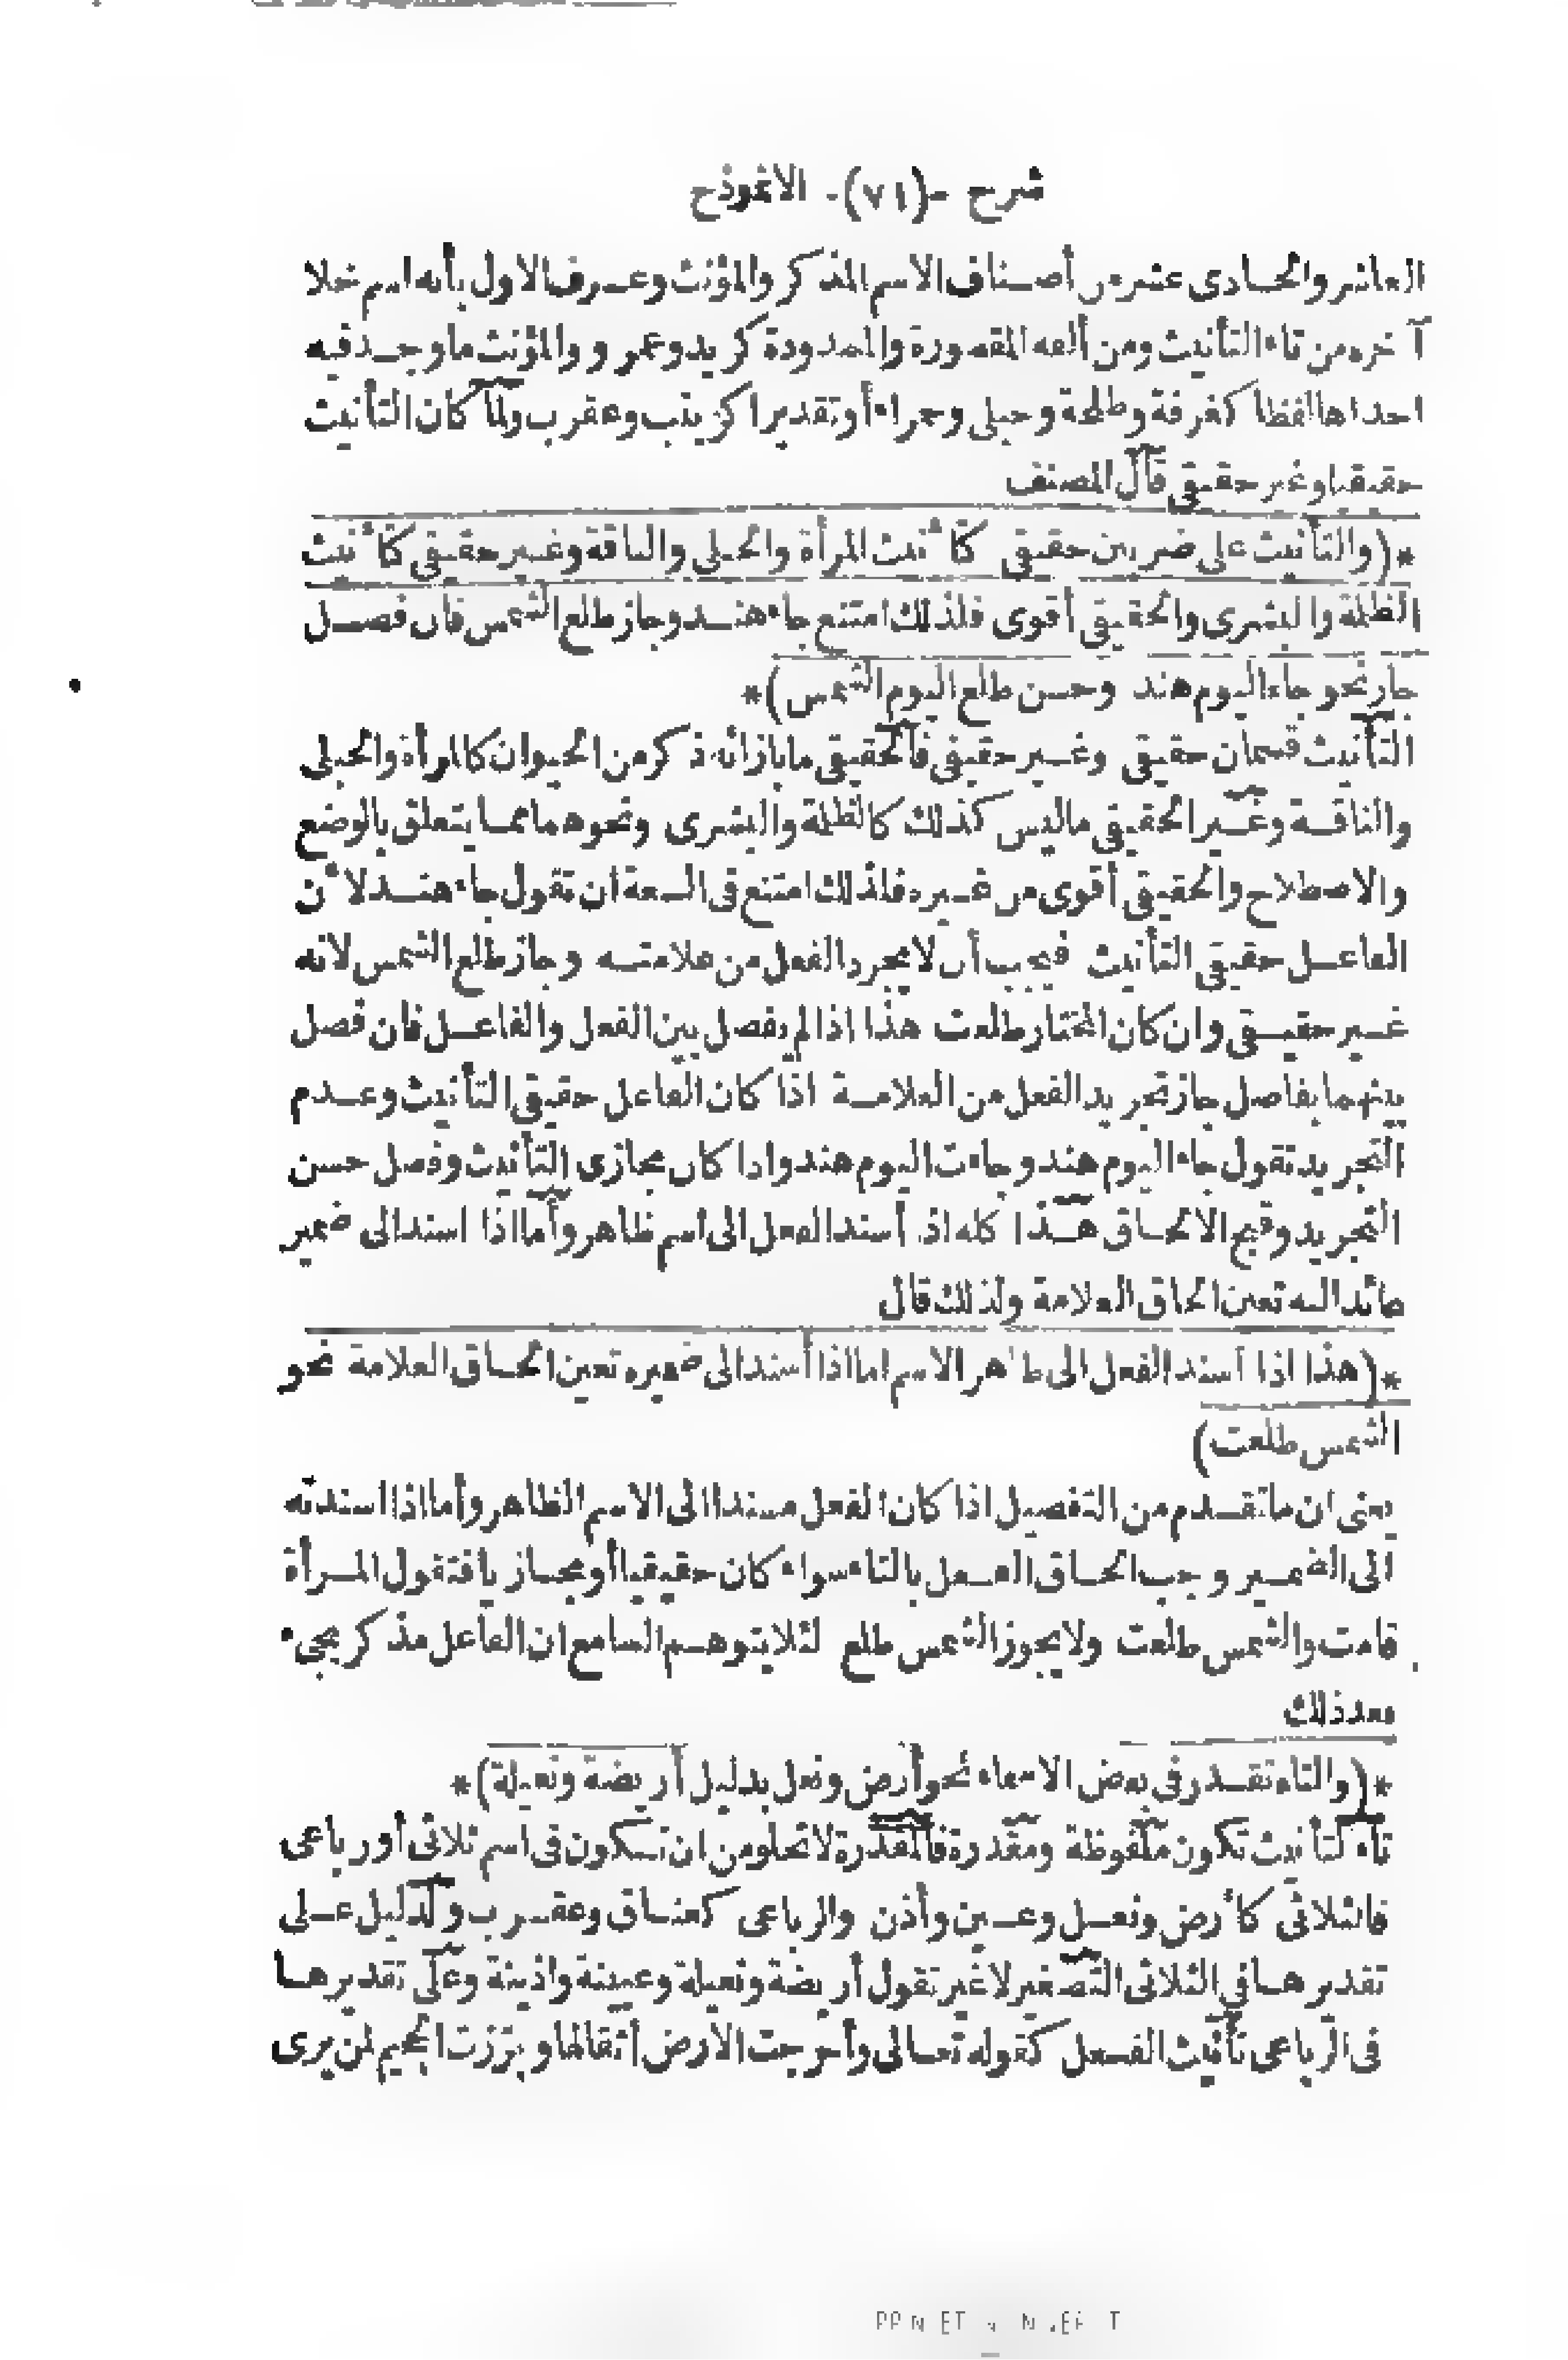 شرح -(٧١)- الانموذج
العاشر والحادى عشر من أصناف الاسم المذكر والمؤنث وعرف الاول بأنه اسم خلا
آخره من تاء التأنيث ومن ألفه المقصورة والممدودة كزيد وعمرو والمؤنث ما وجد فيه
احداها لفظا كغرفة وطلحة وحبلى وحمراء أو تقديرا كزينب وعقرب ولما كان التأنيث
حقيقيا وغير حقيقى قال المصنف
*(والتأنيث على ضربين حقيقى كتأنيث المرأة والحبلى والناقة وغير حقيقى كتأنيث
الظلمة والبشرى والحقيقى أقوى فلذلك امتنع جاء هند وجاز طلع الشمس فان فصل
جاز نحو جاء اليوم هند وحسن طلع اليوم الشمس)*
التأنيث قسمان حقيقى وغير حقيقى فالحقيقى ما بازائه ذكر من الحيوان كالمرأة والحبلى
والناقة وغير الحقيقى ما ليس كذلك كالظلمة والبشرى ونحوهما مما يتعلق بالوضع
والاصطلاح والحقيقى أقوى من غيره فلذلك امتنع فى السعة ان تقول جاء هند لأن
الفاعل حقيقى التأنيث فيجب أن لا يجرد الفعل من علامته وجاز طلع الشمس لانه
غير حقيقى وان كان المختار طلعت هذا اذا لم يفصل بين الفعل والفاعل فان فصل
بينهما بفاصل جاز تجريد الفعل من العلامة اذا كان الفاعل حقيقى التأنيث وعدم
التجريد تقول جاء اليوم هند وجاءت اليوم هند واذا كان مجازى التأنيث وفصل حسن
التجريد وقبح الالحاق هذا كله اذ أسند الفعل الى اسم ظاهر وأما اذا اسند الى ضمير
عائد اليه تعين الحاق العلامة ولذلك قال
*(هذا اذا أسند الفعل الى ظاهر الاسم اما اذا أسند الى ضميره تعين الحاق العلامة نحو
الشمس طلعت)
يعنى ان ما تقدم من التفصيل اذا كان الفعل مسندا الى الاسم الظاهر وأما اذا اسندته
الى الضمير وجب الحاق الفعل بالتاء سواء كان حقيقيا أو مجازيا فتقول المرأة
قامت والشمس طلعت ولا يجوز الشمس طلع لئلا يتوهم السامع ان الفاعل مذكر يجىء
بعد ذلك
*(والتاء تقدر فى بعض الاسماء نحو أرض ونعل بدليل أريضة ونعيلة)*
تاء التأنيث تكون ملفوظة ومقدرة فالمقدرة لا تخلو من ان تكون فى اسم ثلاثى أو رباعى
فالثلاثى كأرض ونعل وعين وأذن والرباعى كعناق وعقرب والدليل على
تقديرها فى الثلاثى التصغير لا غير تقول أريضة ونعيلة وعيينة واذينة وعلى تقديرها
فى الرباعى تأنيث الفعل كقوله تعالى وأخرجت الارض أثقالها وبرزت الجحيم لمن يرى